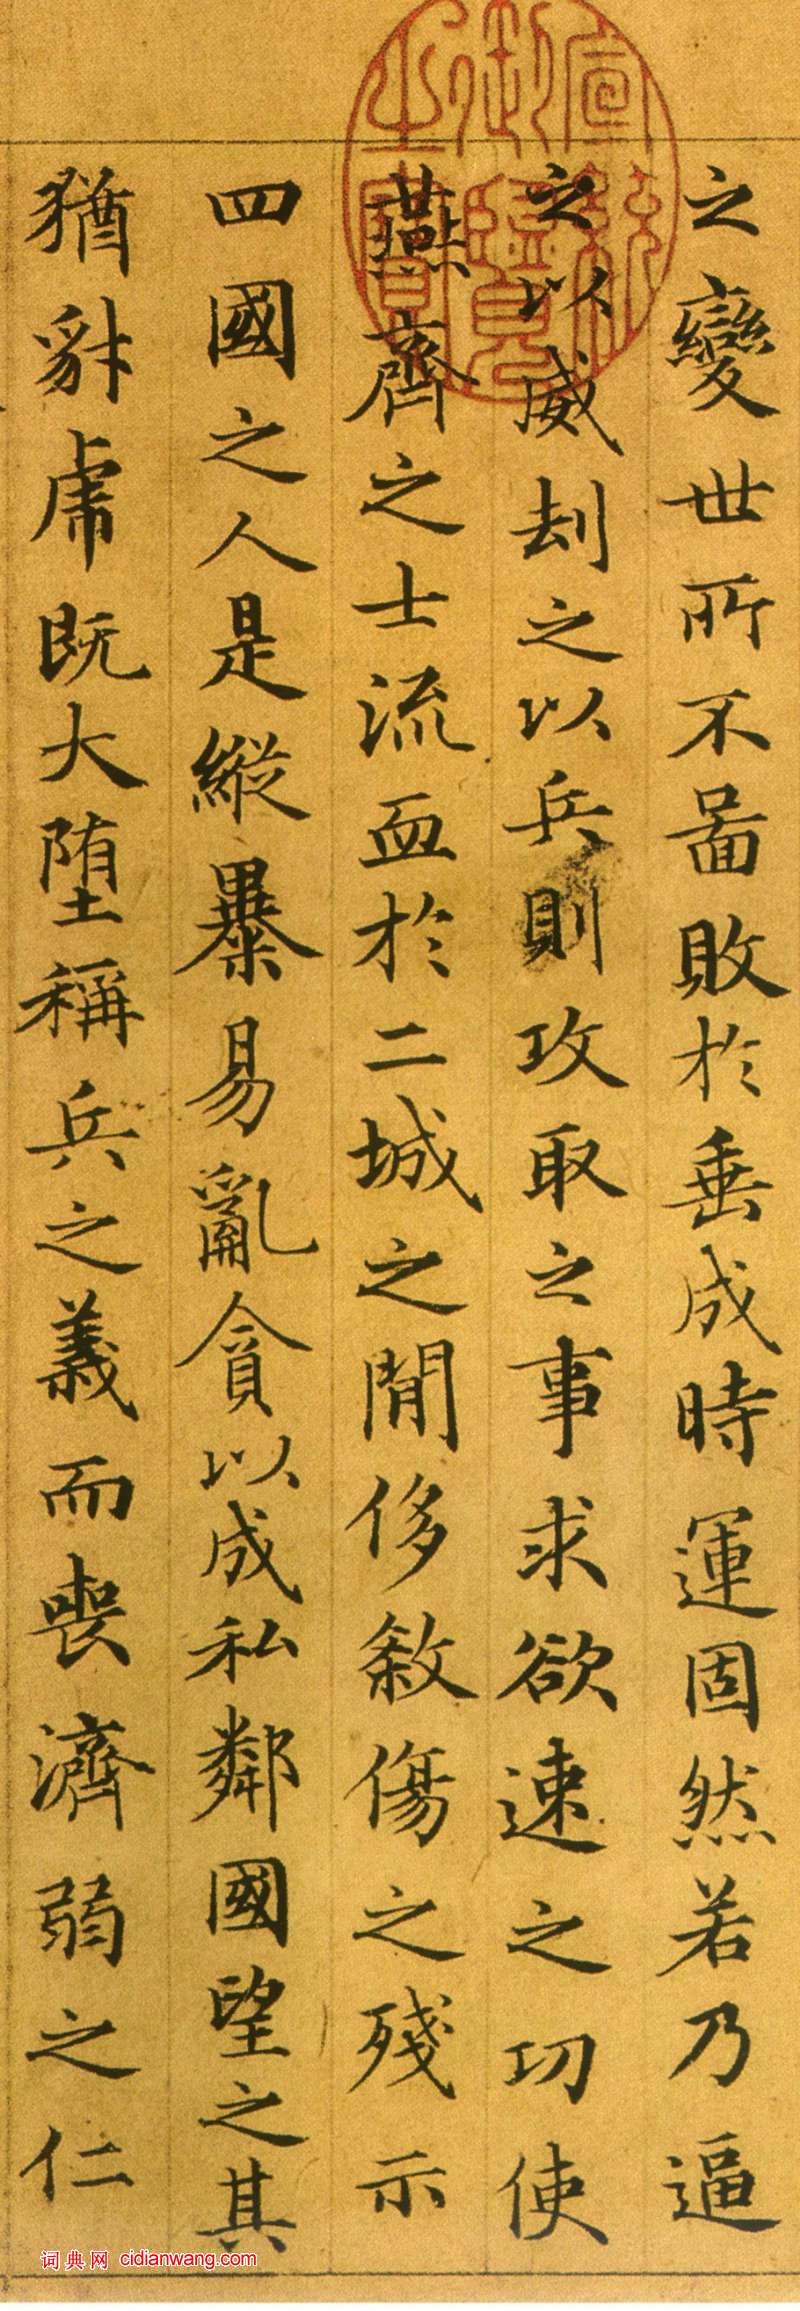 之變世所不啚敗於垂成時運固然若乃逼
之以威刦之以兵則攻取之事求欲速之功使
燕齊之士流血於二城之閒侈敘傷之殘示
四國之人是縱暴易亂貪以成私鄰國望之其
猶豺虎既大堕稱兵之義而喪濟弱之仁
宣統御覽之寶
词典网 cidianwang.com